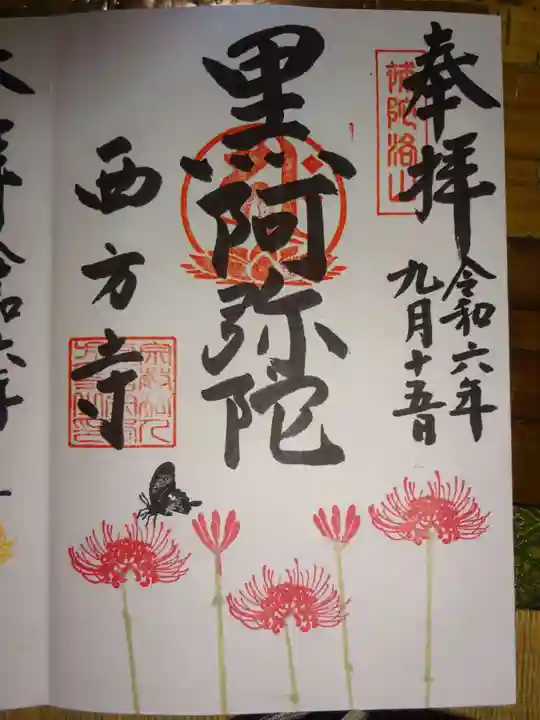 奉拝
補陀洛山
令和六年
九月十五日
黒阿弥陀
西方寺
令和六年